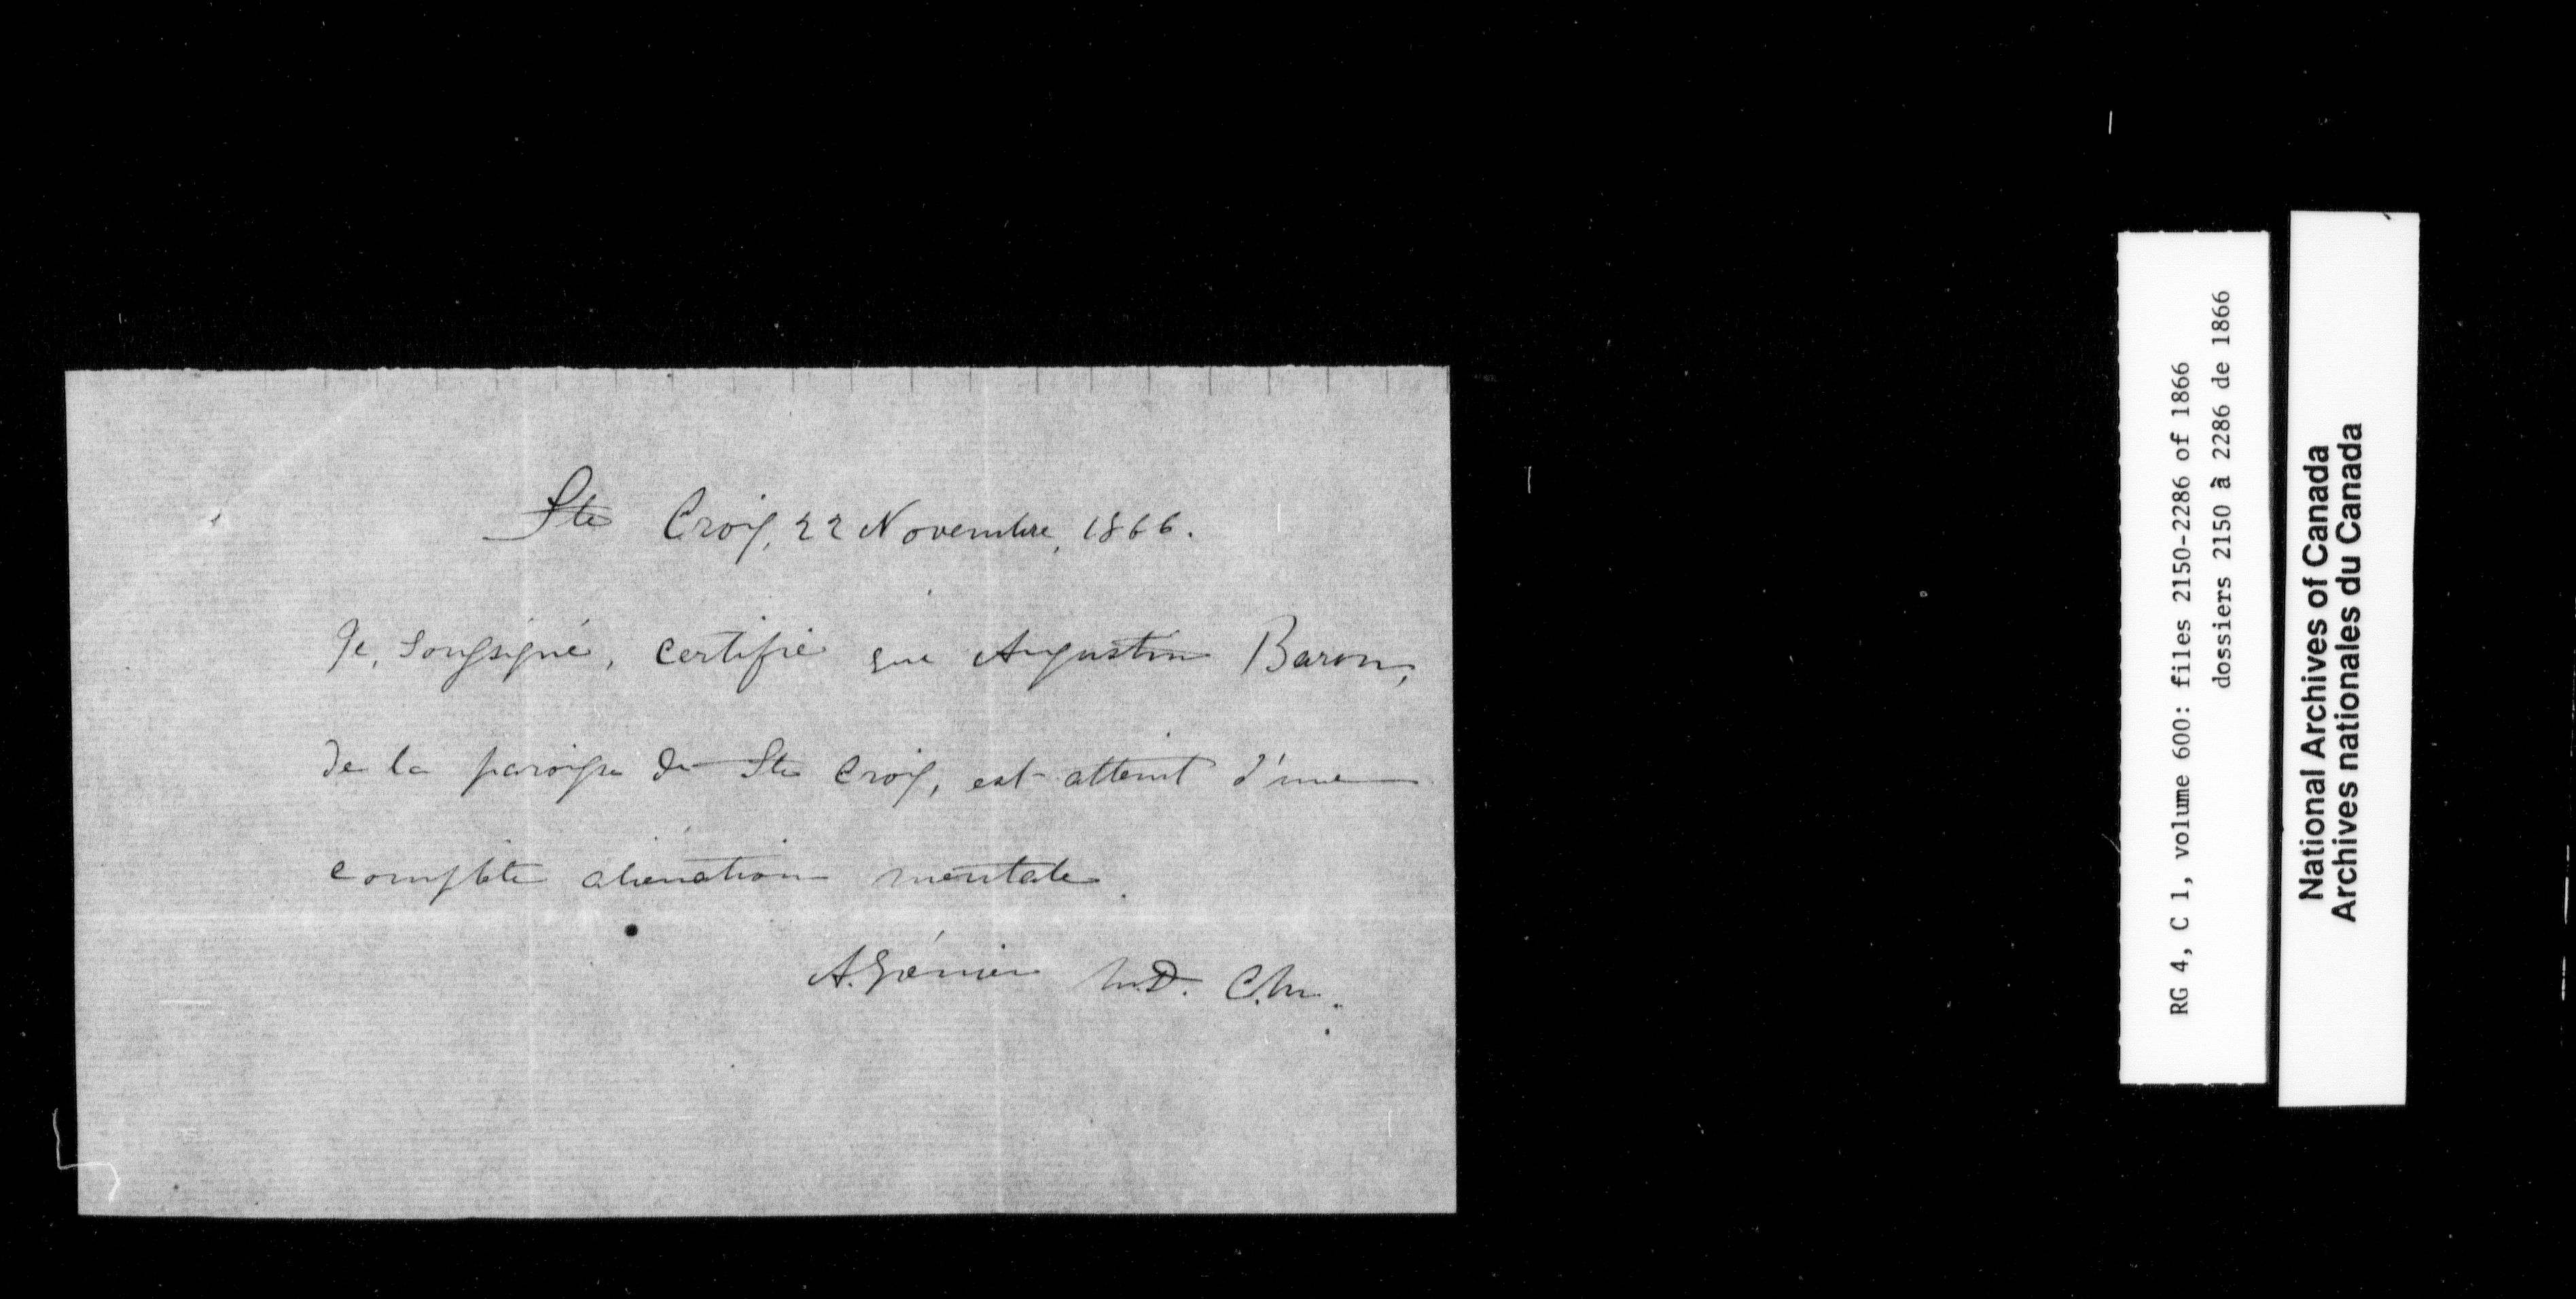 Ste Croix, 22 Novembre, 1866.
Je, soussigné, certifie que Augustin Baron,
de la paroisse de Ste Croix, est atteint d'une
complète aliénation mentale.
A. Grénier M.D. C.M.
RG 4, C 1, volume 600: files 2150-2286 of 1866
dossiers 2150 à 2286 de 1866
National Archives of Canada
Archives nationales du Canada